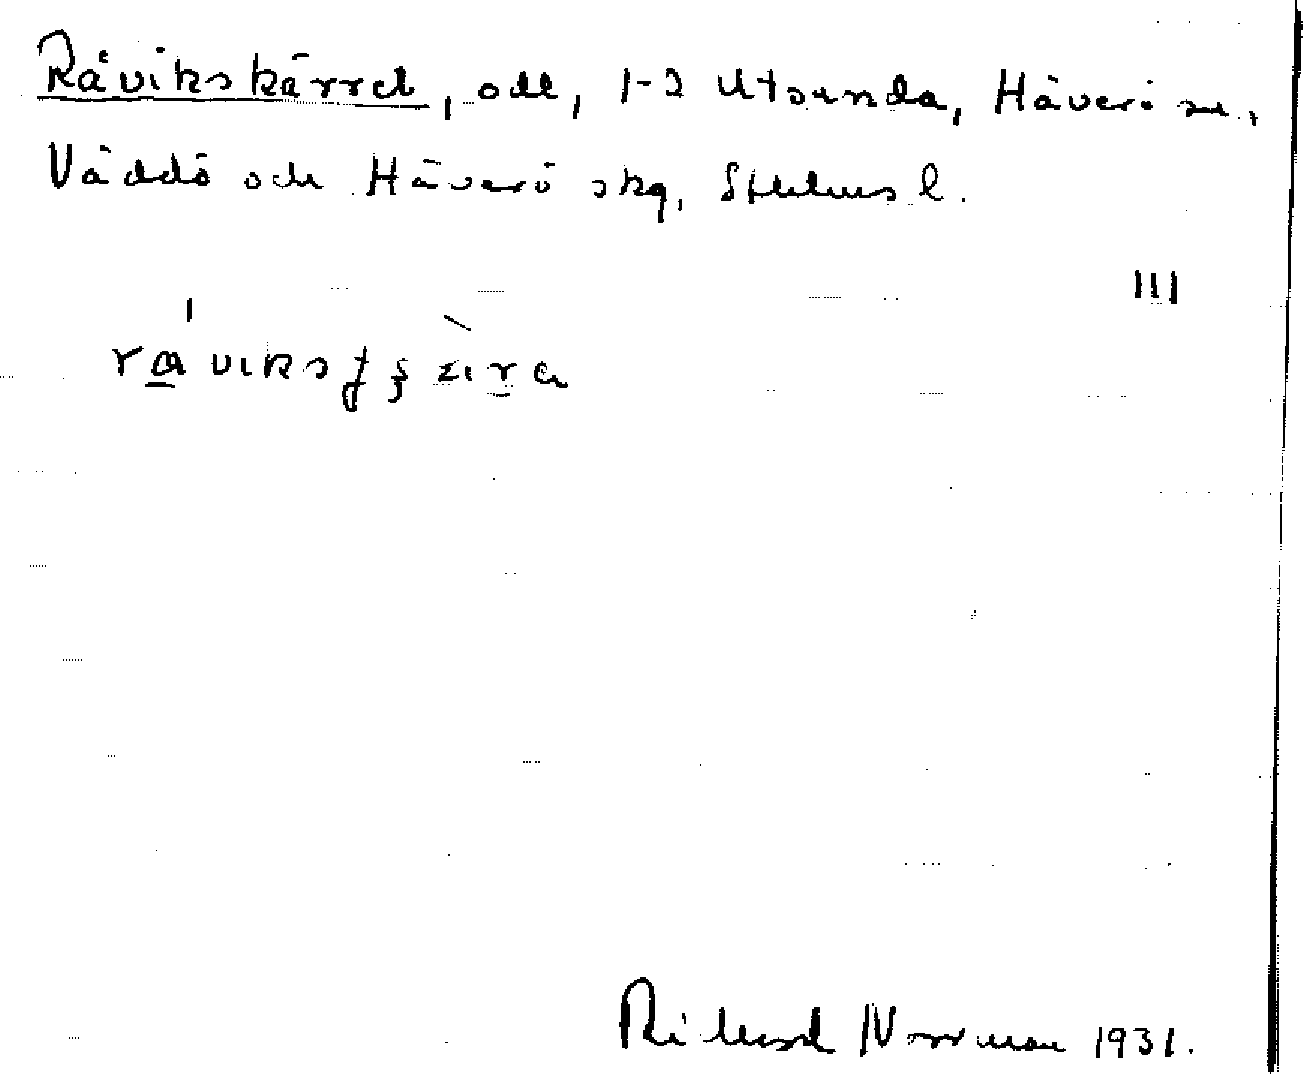 Råvikskärret, odl, 1-2 Utsunda, Häverö sn.,
Väddö och Häverö skg, Sthlms l.
III
Rickard Norrman 1931.